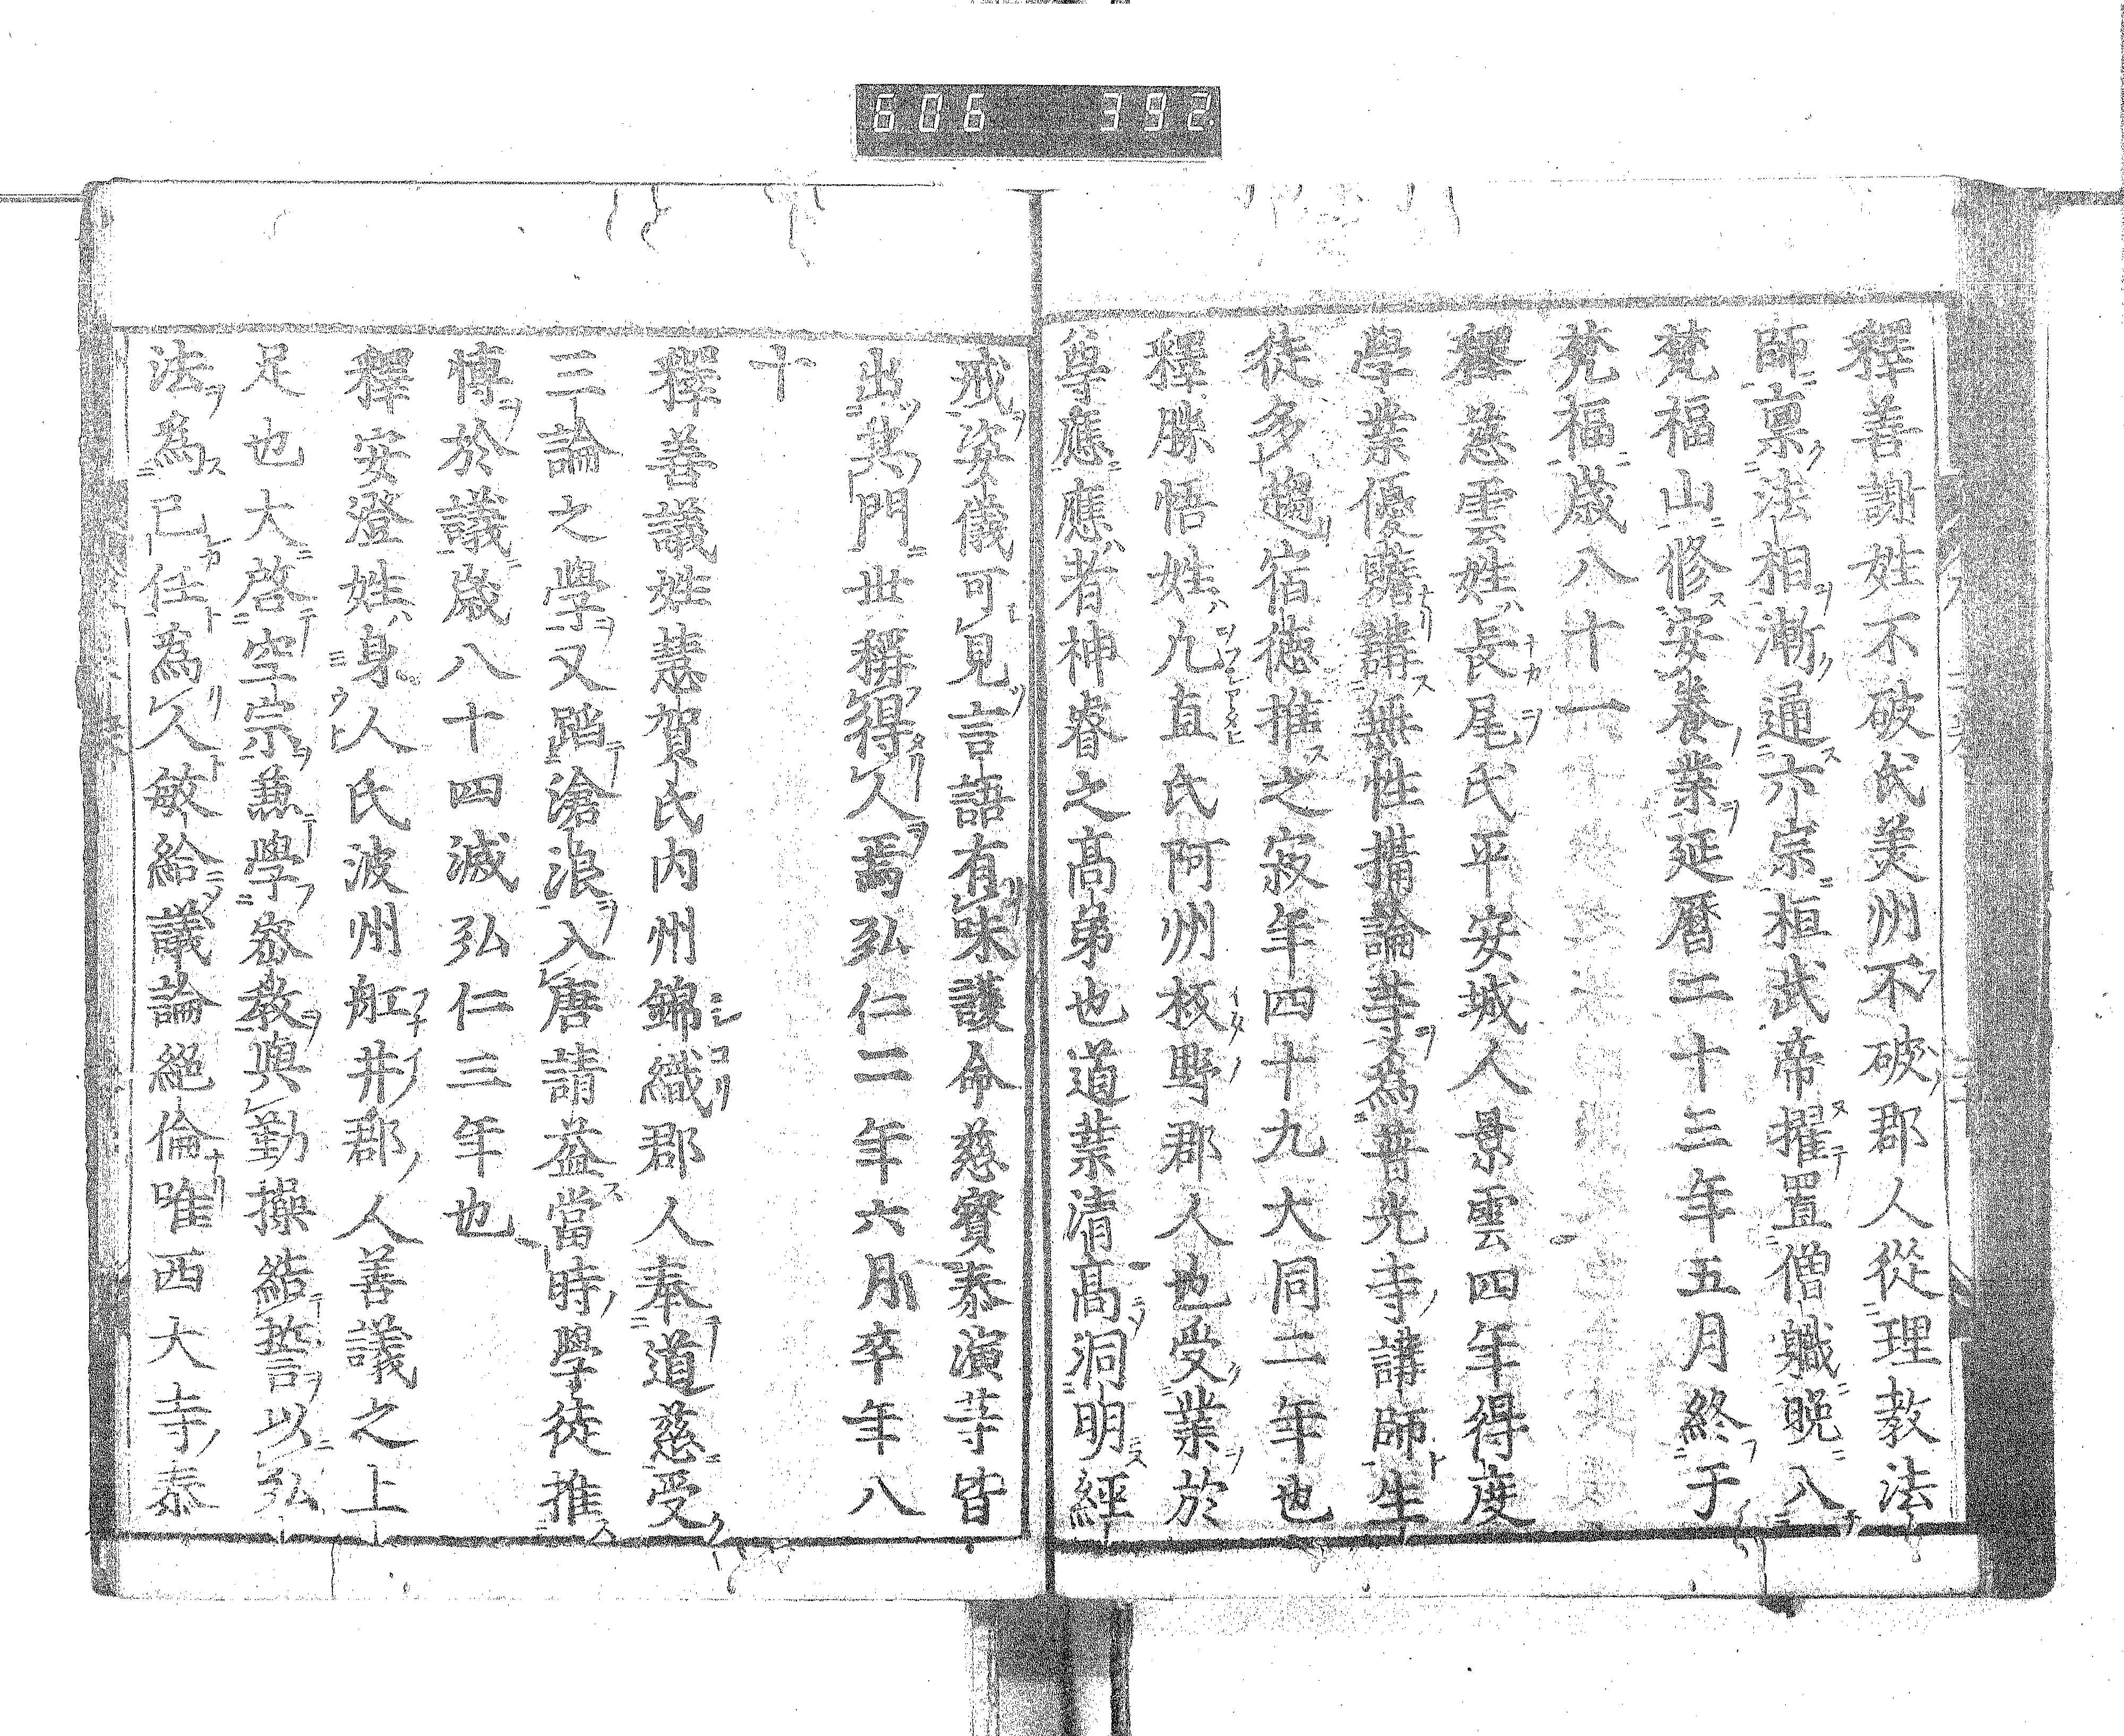 606 392
釋善謝姓不破氏美州不破郡人從理教法
師稟法相漸通六宗桓武帝擢置僧職晚入
梵福山修安養業延曆二十三年五月終于
梵福歲八十一
釋慈雲姓長尾氏平安城人景雲四年得度
學業優贍講無性攝論等為普光寺講師生
徒多趨宿德推之寂年四十九大同二年也
釋勝悟姓凡直氏阿州板野郡人也受業於
尊應應者神睿之高弟也道業清高洞明經
戒姿儀可見言語有味護命慈寶泰演等皆
出其門世稱得人焉弘仁二年六月卒年八
十
釋善議姓慧賀氏內州錦織郡人奉道慈受
三論之學又蹈滄浪入唐請益當時學徒推
博於議歲八十四滅弘仁三年也
釋安澄姓身人氏波州舡井郡人善議之上
足也大啓空宗兼學密教與勤操結誓以弘
法為己任為人敏給議論絕倫唯西大寺泰